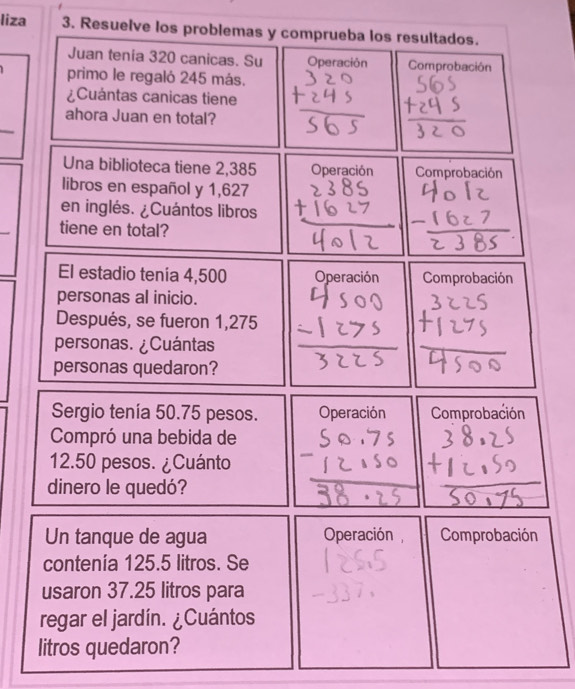 liza
3. Resuelve los problemas y comprueba los resultados.
Juan tenía 320 canicas. Su
primo le regaló 245 más.
¿Cuántas canicas tiene
ahora Juan en total?
Operación
320
+245
565
Comprobación
565
+245
320
Una biblioteca tiene 2,385
libros en español y 1,627
en inglés. ¿Cuántos libros
tiene en total?
Operación
2385
+1627
4012
Comprobación
4012
-1627
2385
El estadio tenía 4,500
personas al inicio.
Después, se fueron 1,275
personas. ¿Cuántas
personas quedaron?
Operación
4500
-1275
3225
Comprobación
3225
+1275
4500
Sergio tenía 50.75 pesos.
Compró una bebida de
12.50 pesos. ¿Cuánto
dinero le quedó?
Operación
50.75
-12.50
38.25
Comprobación
38.25
+12.50
50.75
Un tanque de agua
contenía 125.5 litros. Se
usaron 37.25 litros para
regar el jardín. ¿Cuántos
litros quedaron?
Operación
125.5
-337.
Comprobación